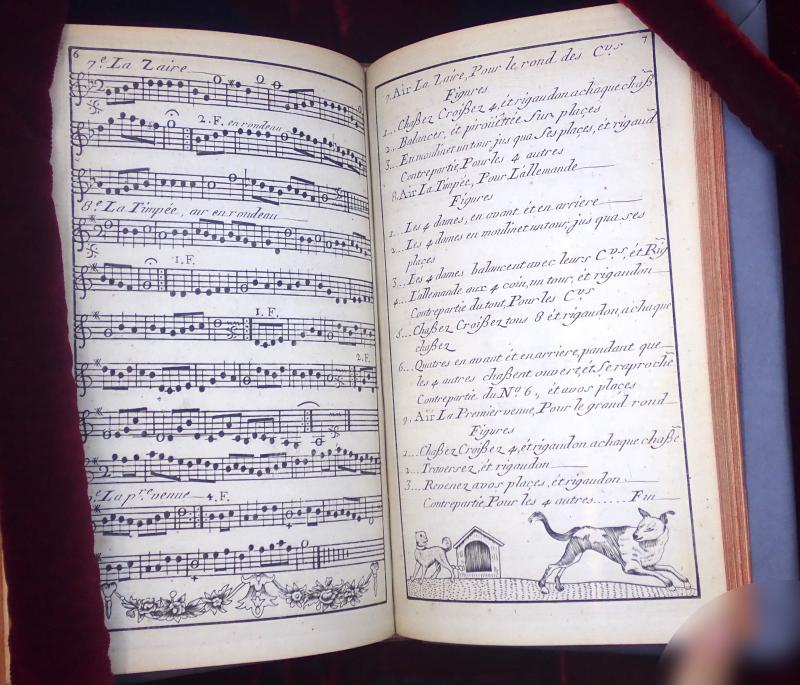 6
7.e La Zaire
2. F. en rondeau
8.e La Timpée, air en rondeau
1. F.
1. F.
2. F.
9.e La p.re venue 4. F.
7
7. Air La Zaire, Pour le rond des C.vs
Figures
1... Chaßez Croißez 4, ét rigaudon a chaque chaß
2... Balancez, ét piroüettée Sur plaçes
3... En moulinet un tour, jus qua Ses plaçes, ét rigaud
Contrepartie, Pour les 4 autres
8. Air La Timpée, Pour L'allemande
Figures
1... Les 4 dames, en avant ét en arriere
2... Les 4 dames en moulinet un tour, jus qua ses
plaçes
3... Les 4 dames balancent avec leurs C.vs, ét Rig
4... L'allemande aux 4 coin, un tour, ét rigaudon
Contrepartie du tout, Pour les C.vs
5... Chaßez Croißez tous 8 ét rigaudon, a chaque
chaßez
6... Quatres en avant ét en arriere, pandant que
les 4 autres chaßent ouvert, ét Se raproché
Contrepartie du N.o 6., ét a vos plaçes
9. Air La Premier venue, Pour le grand rond
Figures
1... Chaßez Croißez 4, ét rigaudon a chaque chaße
2... Traversez, ét rigaudon
3... Revenez a vos plaçes, ét rigaudon
Contrepartie, Pour les 4 autres...... Fin